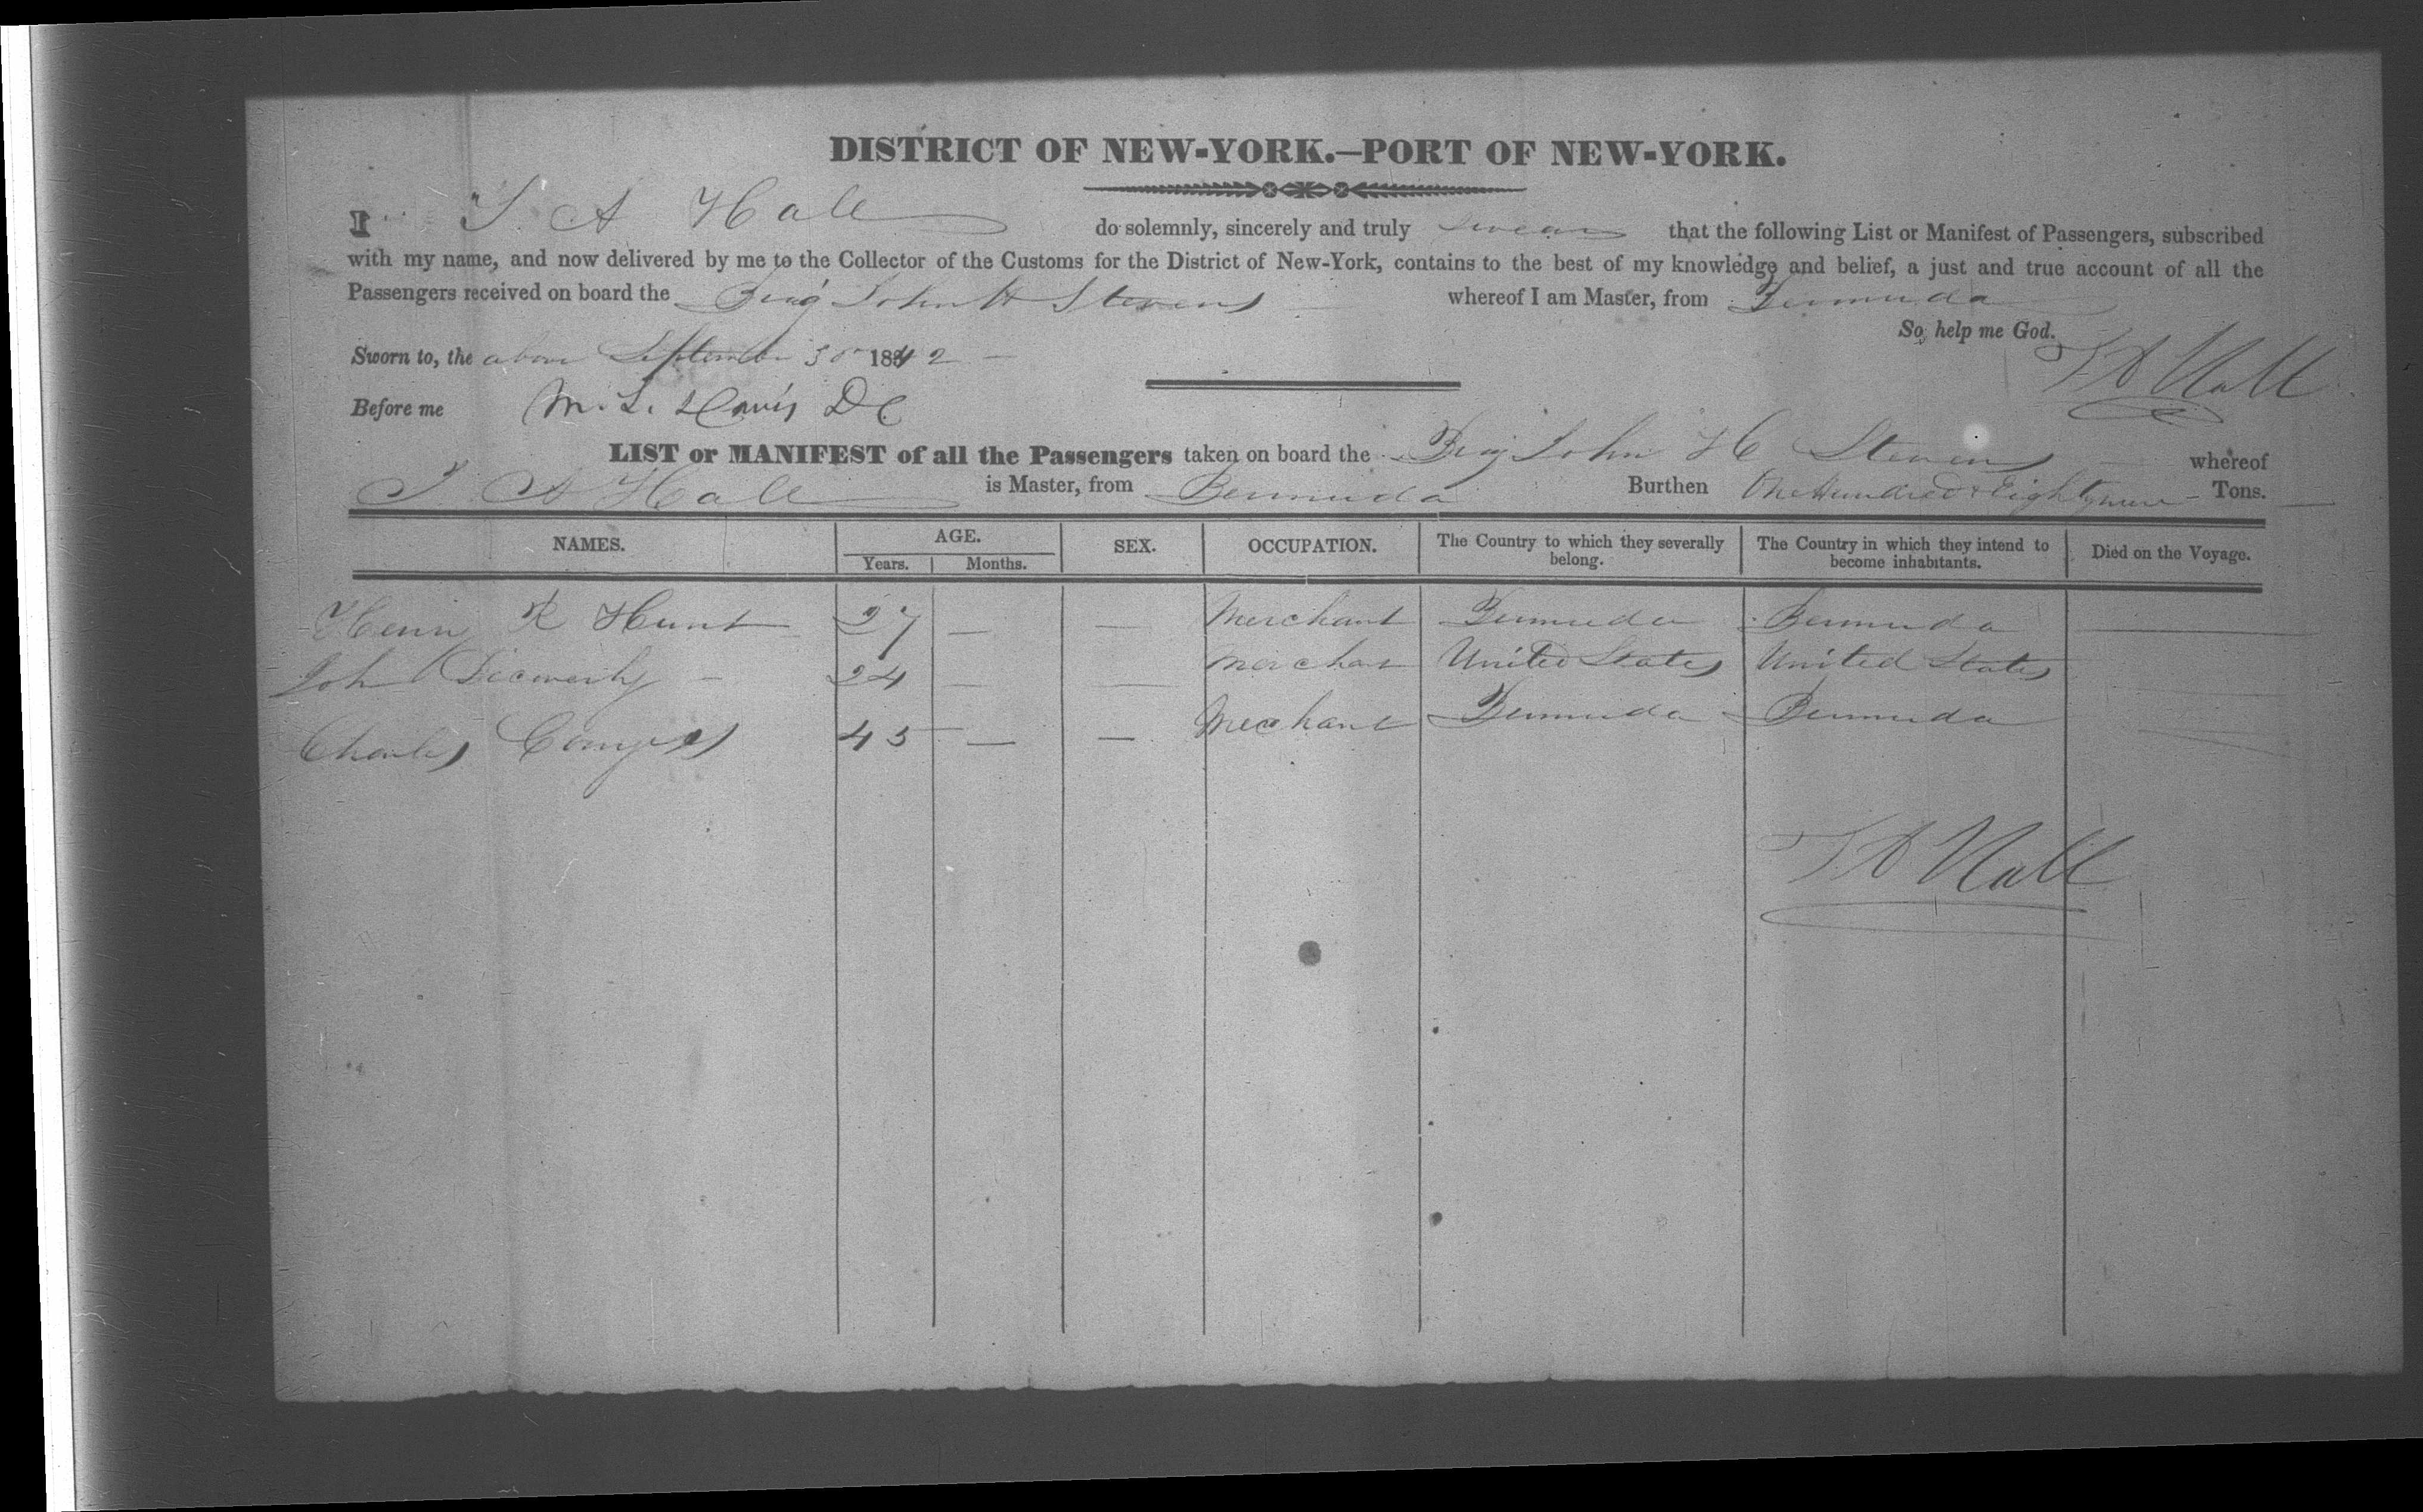 DISTRICT OF NEW-YORK.—PORT OF NEW-YORK.
I T. A Hall do solemnly, sincerely and truly swear that the following List or Manifest of Passengers, subscribed
with my name, and now delivered by me to the Collector of the Customs for the District of New-York, contains to the best of my knowledge and belief, a just and true account of all the
Passengers received on board the Brig John H Stevens whereof I am Master, from Bermuda
So help me God.
Sworn to, the above September 30 1842
T A Hall
Before me M. L. Davis DC
LIST or MANIFEST of all the Passengers taken on board the Brig John H Stevens whereof
T. A Hall is Master, from Bermuda Burthen One Hundred & Eighty Tons.
NAMES. AGE. SEX. OCCUPATION. The Country to which they severally belong. The Country in which they intend to become inhabitants. Died on the Voyage.
Years. Months.
Henry R Hunt 27 — — Merchant Bermuda Bermuda
John 24 — — Merchant United States United States
Charles 45 — — Merchant Bermuda Bermuda
T A Hall